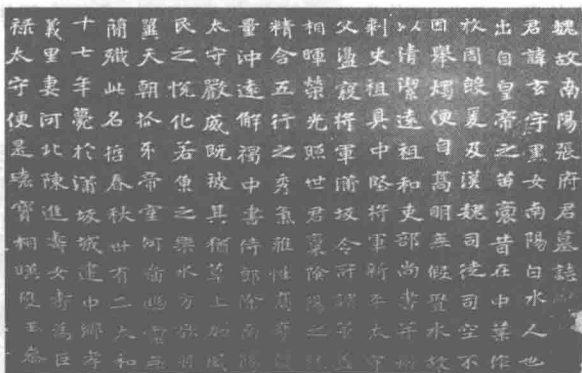 魏故南陽張府君墓誌
君諱玄字黑女南陽白水人也
出自皇帝之苗裔昔在中葉作
牧周殷爰及漢魏司徒司空不
因舉燭便自高明無假置水故
以清潔遠祖和吏部尚書并州
刺史祖具中堅將軍新平太守
父盪寇將軍蒲坂令所謂華蓋
相暉榮光照世君稟陰陽之純
精含五行之秀氣雅性高奇識
量沖遠解褐中書侍郎除南陽
太守嚴威既被其猶草上加風
民之悅化若魚之樂水方欲羽
翼天朝抓牙帝室何圖幽靈無
簡殲此名哲春秋卅有二太和
十七年薨於蒲坂城建中鄉孝
義里妻河北陳進壽女壽為巨
祿太守便是瑰寶相暎瓊玉參